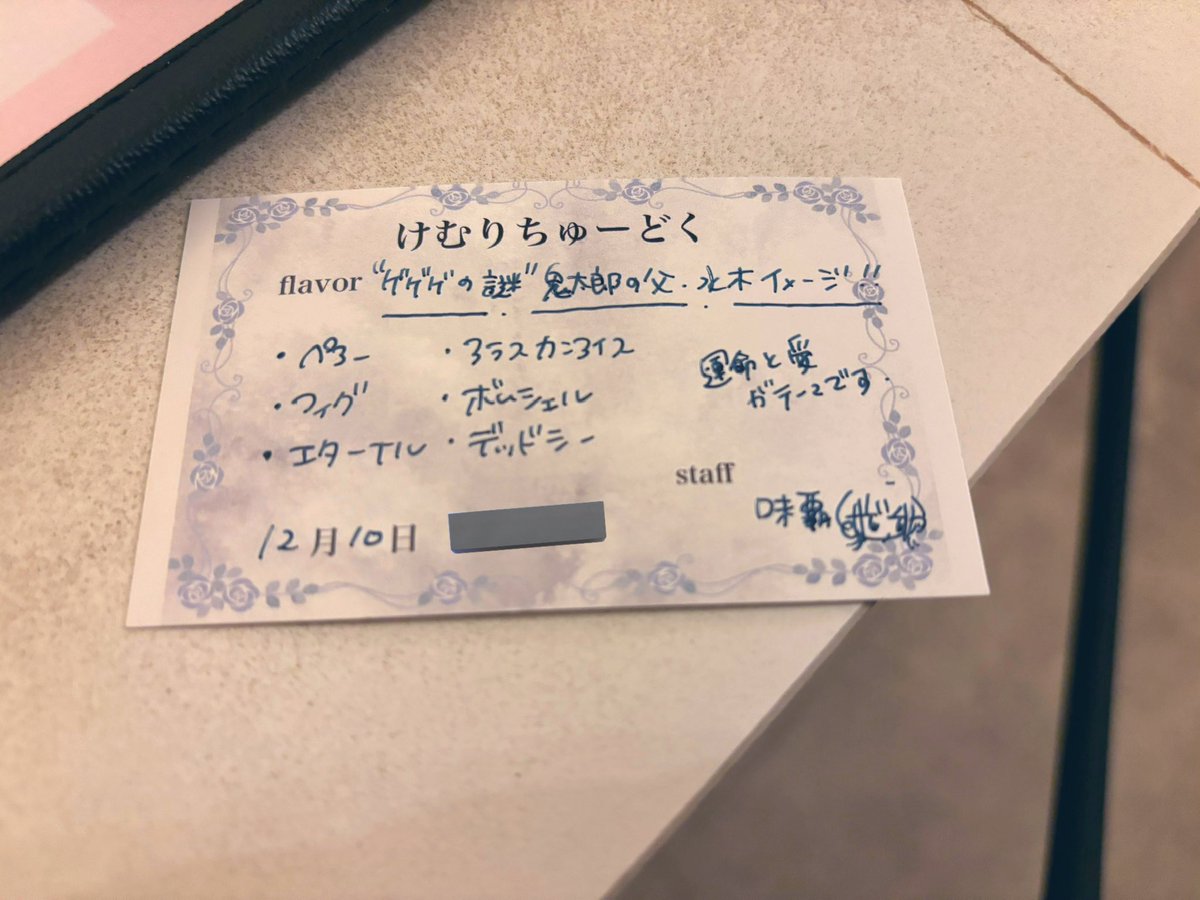 けむりちゅーどく
flavor “ゲゲゲの謎” 鬼太郎の父・水木イメージ!!
・ペアー
・フィグ
・エターナル
・アラスカンアイス
・ボムシェル
・デッドシー
運命と愛
がテーマです.
staff
味覇
12月10日